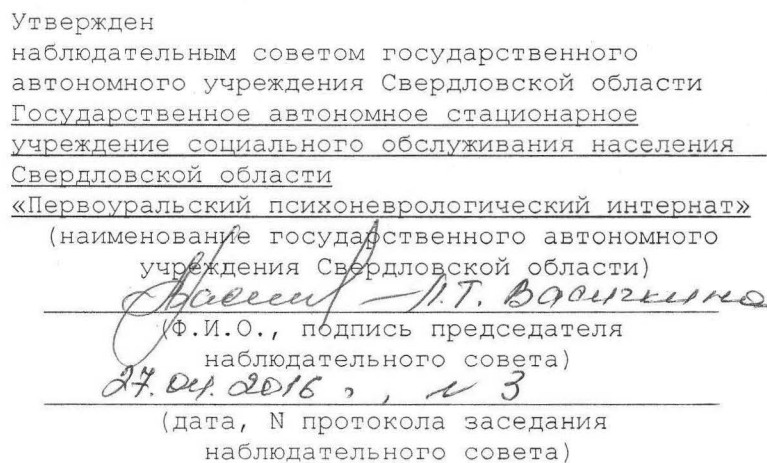 Утвержден
наблюдательным советом государственного
автономного учреждения Свердловской области
Государственное автономное стационарное
учреждение социального обслуживания населения
Свердловской области
«Первоуральский психоневрологический интернат»
(наименование государственного автономного
учреждения Свердловской области)
Л.Т. Васичкина
(Ф.И.О., подпись председателя
наблюдательного совета)
27.04.2016 г., N 3
(дата, N протокола заседания
наблюдательного совета)